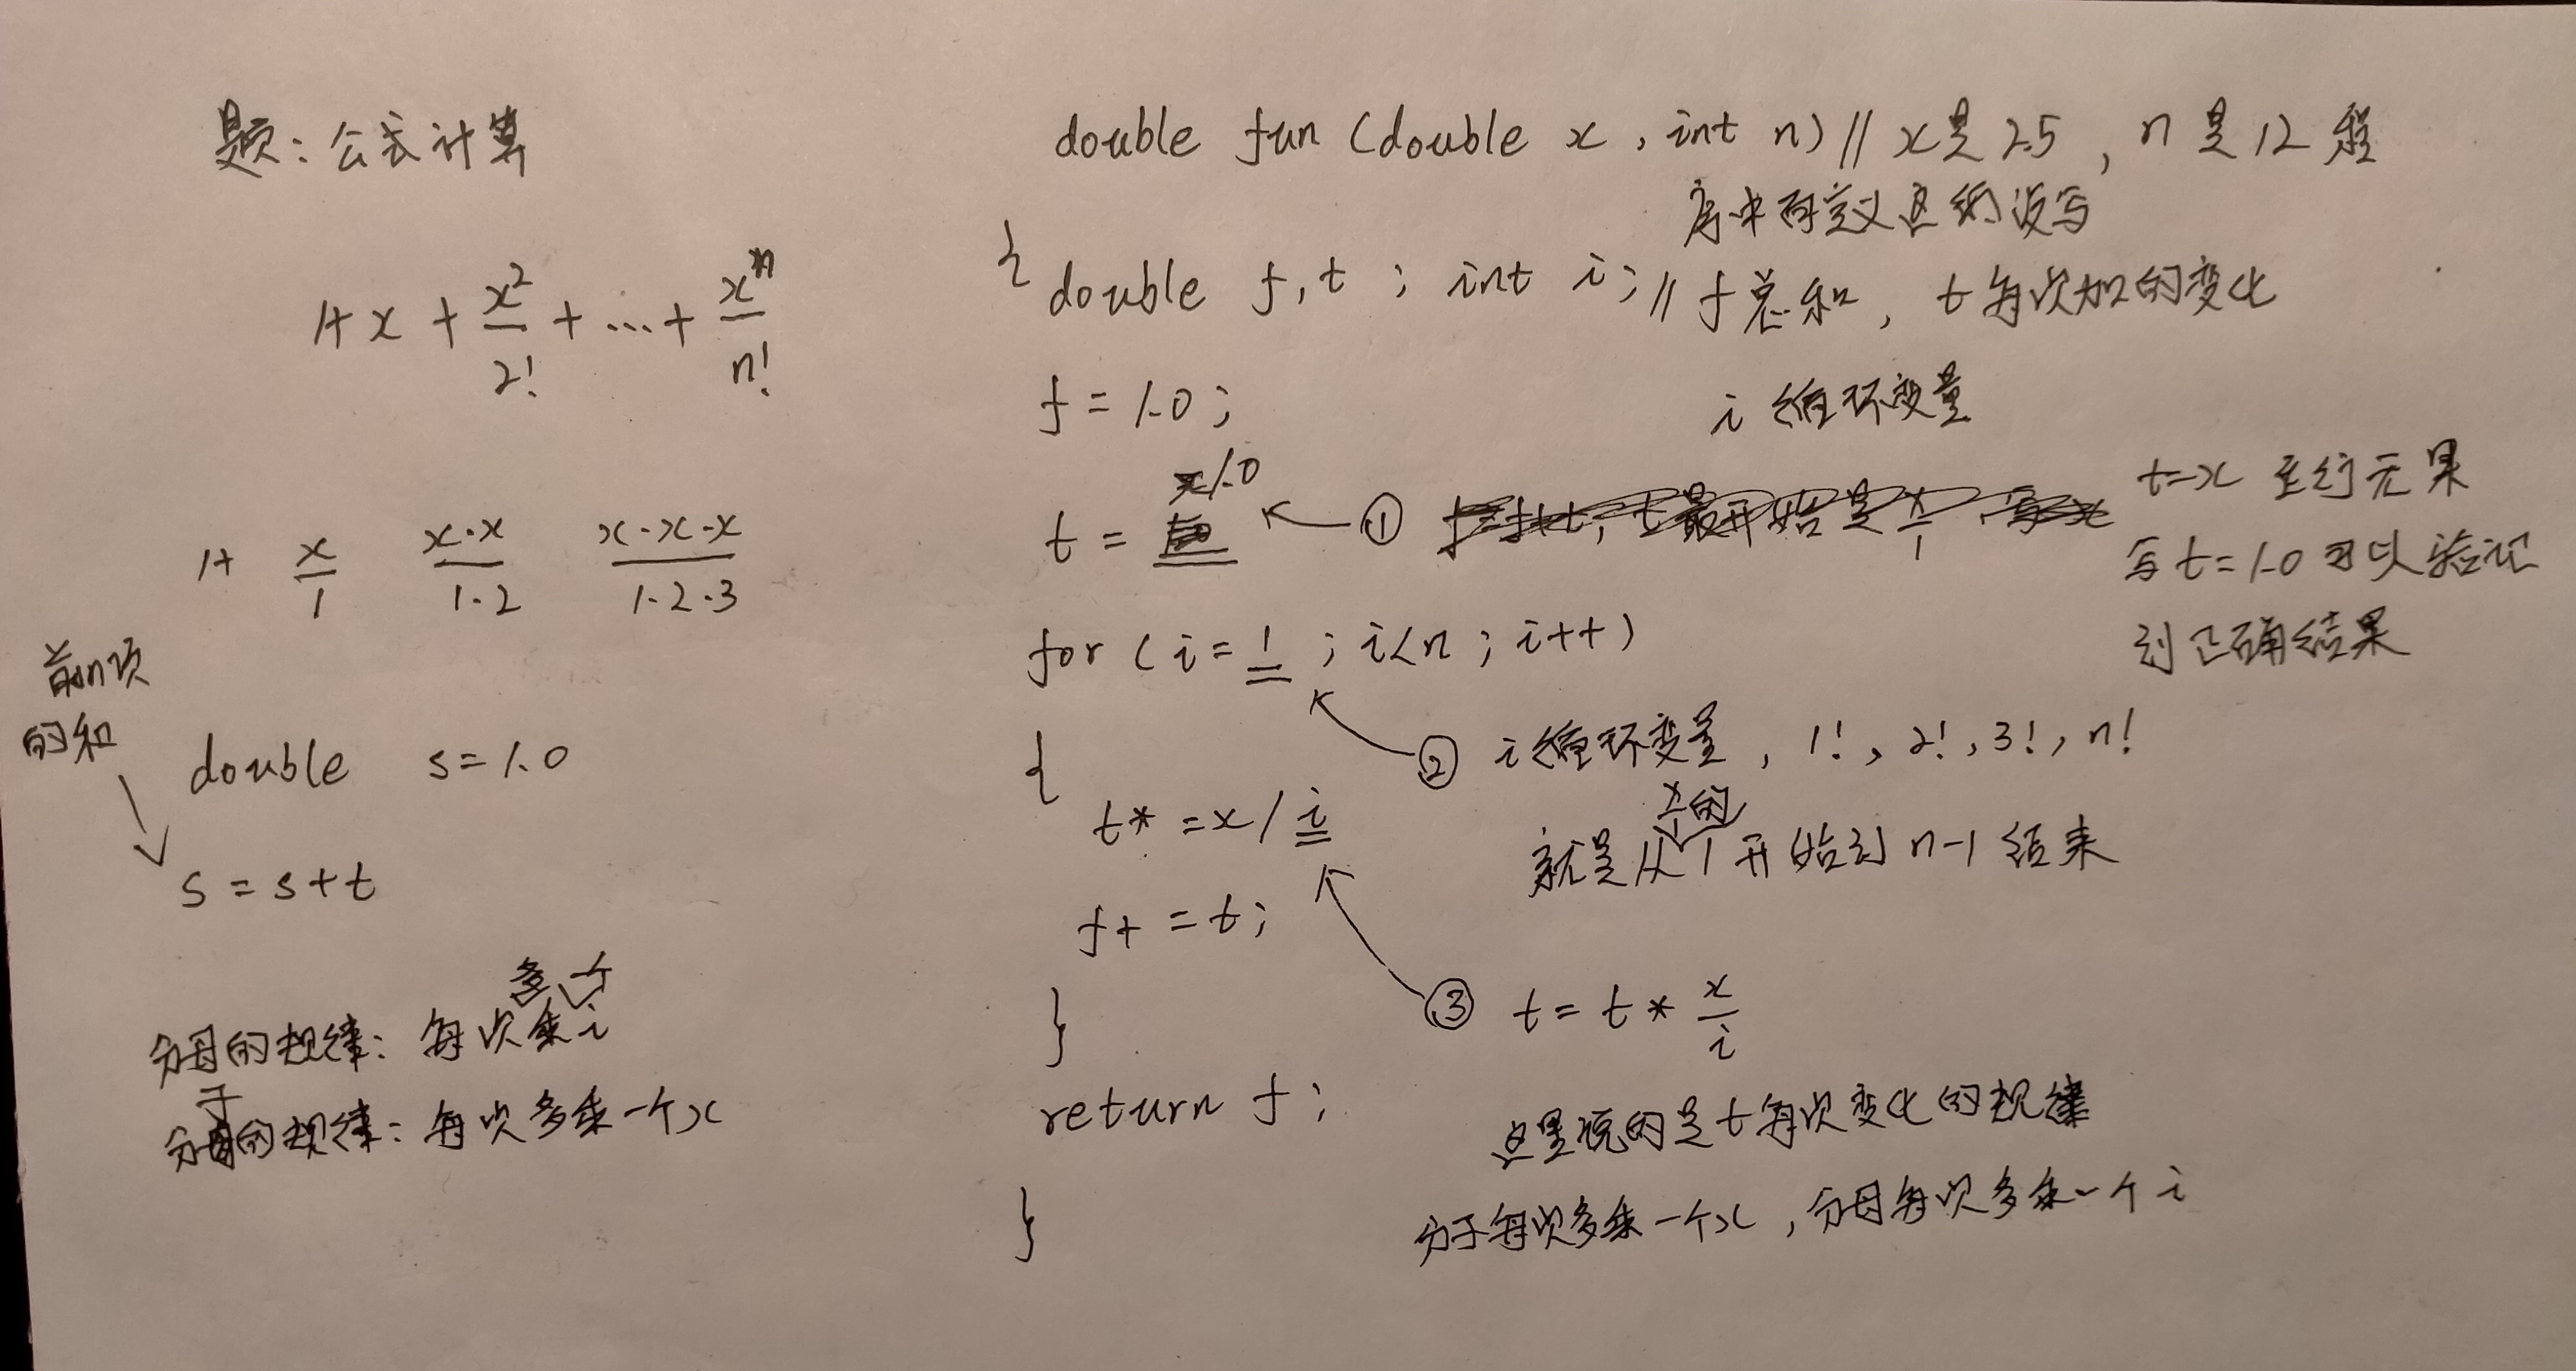 题：公式计算
1+x+x²/2!+...+xⁿ/n!
1+ x/1 x·x/1·2 x·x·x/1·2·3
前n项
的和
double s=1.0
s=s+t
多一个
分母的规律：每次乘i
分子的规律：每次多乘一个x
double fun (double x, int n) // x是2.5，n是12 程
序中有定义这的没写
{
double f,t; int i; // f总和，t每次加的变化
f=1.0;
i循环变量
1.0
t=
① t最开始是x/1
t=x 运行无果
写t=1.0可以验证
到正确结果
for (i=1; i<n; i++)
{
② i循环变量，1!，2!，3!，n!
x/1的
就是从1开始到n-1结束
t*=x/i
f+=t;
③ t=t*x/i
}
return f;
这里说的是t每次变化的规律
分子每次多乘一个x，分母每次多乘一个i
}